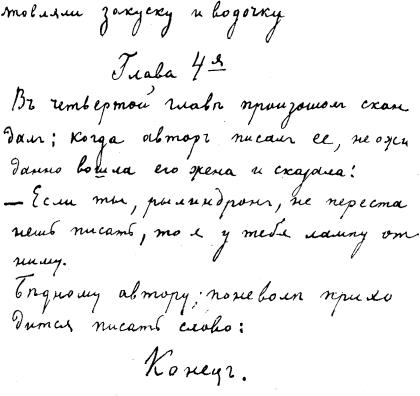 товляли закуску и водочку
Глава 4я
Въ четвертой главѣ произошолъ скан
далъ; когда авторъ писалъ ее, неожи
данно вошла его жена и сказала:
— Если ты, рылиндронъ, не переста
нешь писать, то я у тебя лампу от
ниму.
Бѣдному автору поневолѣ прихо
дится писать слово:
Конецъ.